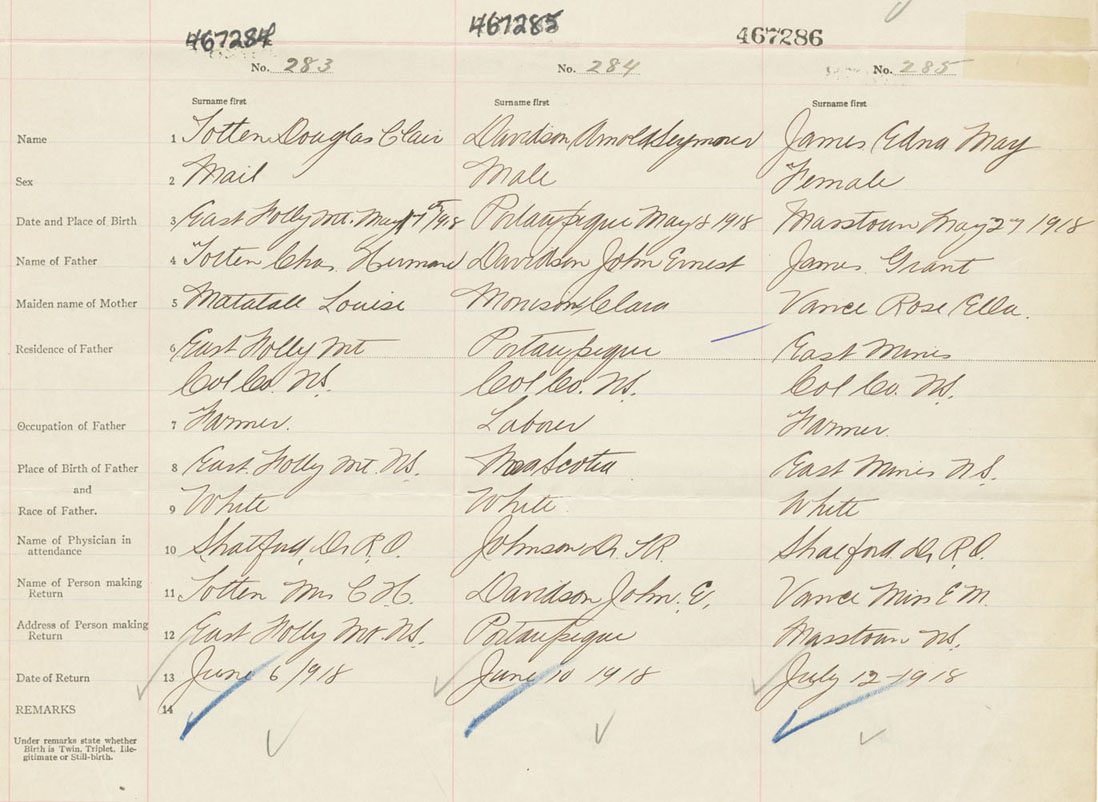 467284 467285 467286
No. 283 No. 284 No. 285
Surname first Surname first Surname first
Name 1 Totten Douglas Clair Davidson Arnold Seymour James Edna May
Sex 2 Mail Male Female
Date and Place of Birth 3 East Folly Mt. May 1st 1918 Portaupique May 8 1918 Masstown May 27 1918
Name of Father 4 Totten Chas. Davidson John Ernest James Grant
Maiden name of Mother 5 Matatall Louise Clara Vance Rose Ella.
Residence of Father 6 East Folly Mt Portaupique East Mines
Col Co. NS. Col Co. NS. Col Co. NS.
Occupation of Father 7 Farmer. Laborer Farmer.
Place of Birth of Father 8 East Folly Mt. NS. Nova Scotia East Mines NS.
and
Race of Father. 9 White White White
Name of Physician in
attendance 10 Shatford, Dr R.O. Johnson Dr. T.R. Shatford. Dr R.O.
Name of Person making
Return 11 Totten Mrs C.H. Davidson John. E. Vance Miss E M.
Address of Person making
Return 12 East Folly Mt. NS. Portaupique Masstown NS.
Date of Return 13 June 6 1918 June 10 1918 July 12 1918
REMARKS 14
Under remarks state whether
Birth is Twin, Triplet, Ille-
gitimate or Still-birth.